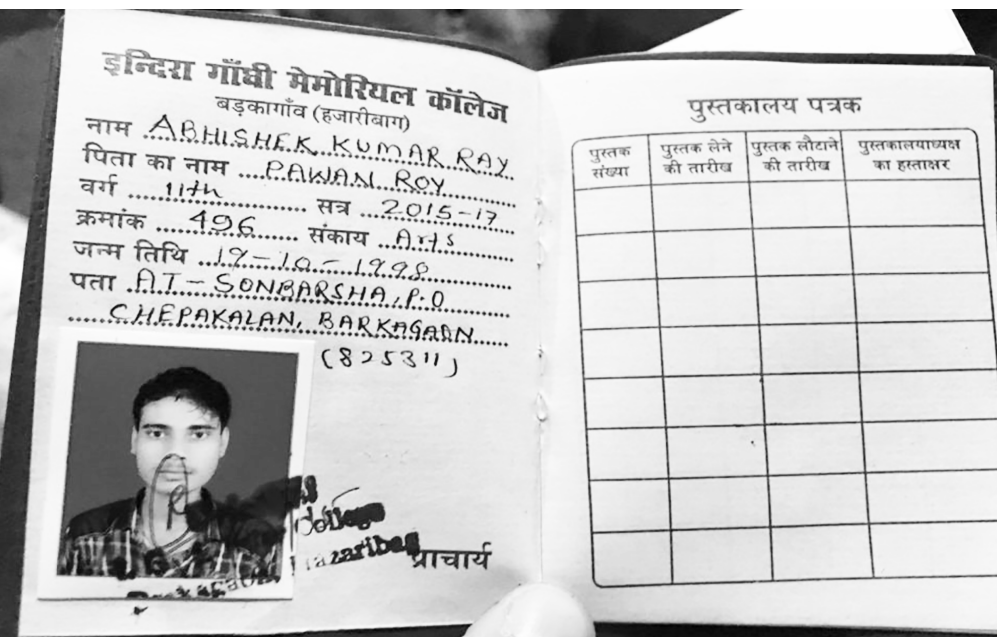 इन्दिरा गाँधी मेमोरियल कॉलेज
बड़कागाँव (हजारीबाग)
नाम ABHISHEK KUMAR RAY
पिता का नाम PAWAN ROY
वर्ग 11th सत्र 2015-17
क्रमांक 496 संकाय Arts
जन्म तिथि 19-10-1998
पता AT-SONBARSHA, P.O
CHEPAKALAN, BARKAGAON
(825311)
College
Hazaribag
प्राचार्य
पुस्तकालय पत्रक
पुस्तक संख्या
पुस्तक लेने की तारीख
पुस्तक लौटाने की तारीख
पुस्तकालयाध्यक्ष का हस्ताक्षर